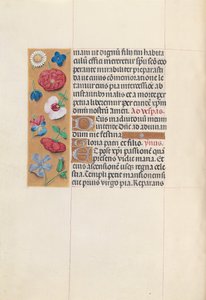 mam ut dignū filij tui habita
culū effici mereretur spū scō coo
perante mirabiliter preparasti
da ut cuius cōmemoratione le
tamur eius pia intercessiōe ab
instantibus malis et a morte per
petua liberemur per eundē xp̄m
dominū nostrū Amen. Ad vesp̄as
Deus in adiutoriū meum
intende Dn̄e ad adiuuan
dum me festina
Gloria patri et filio. ymnus.
post xp̄i passionē
eius ascensionē usq; regna celestia
Templi petit mansionem
virgo pia. Reparans